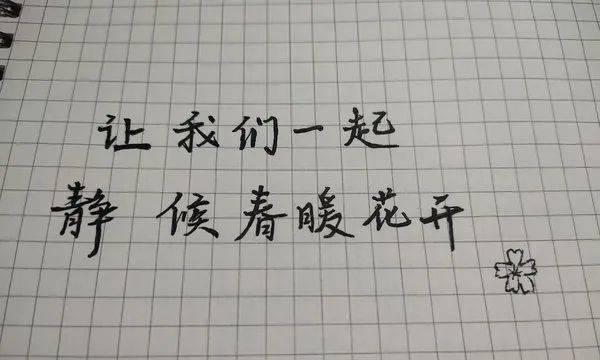 让我们一起
静候春暖花开